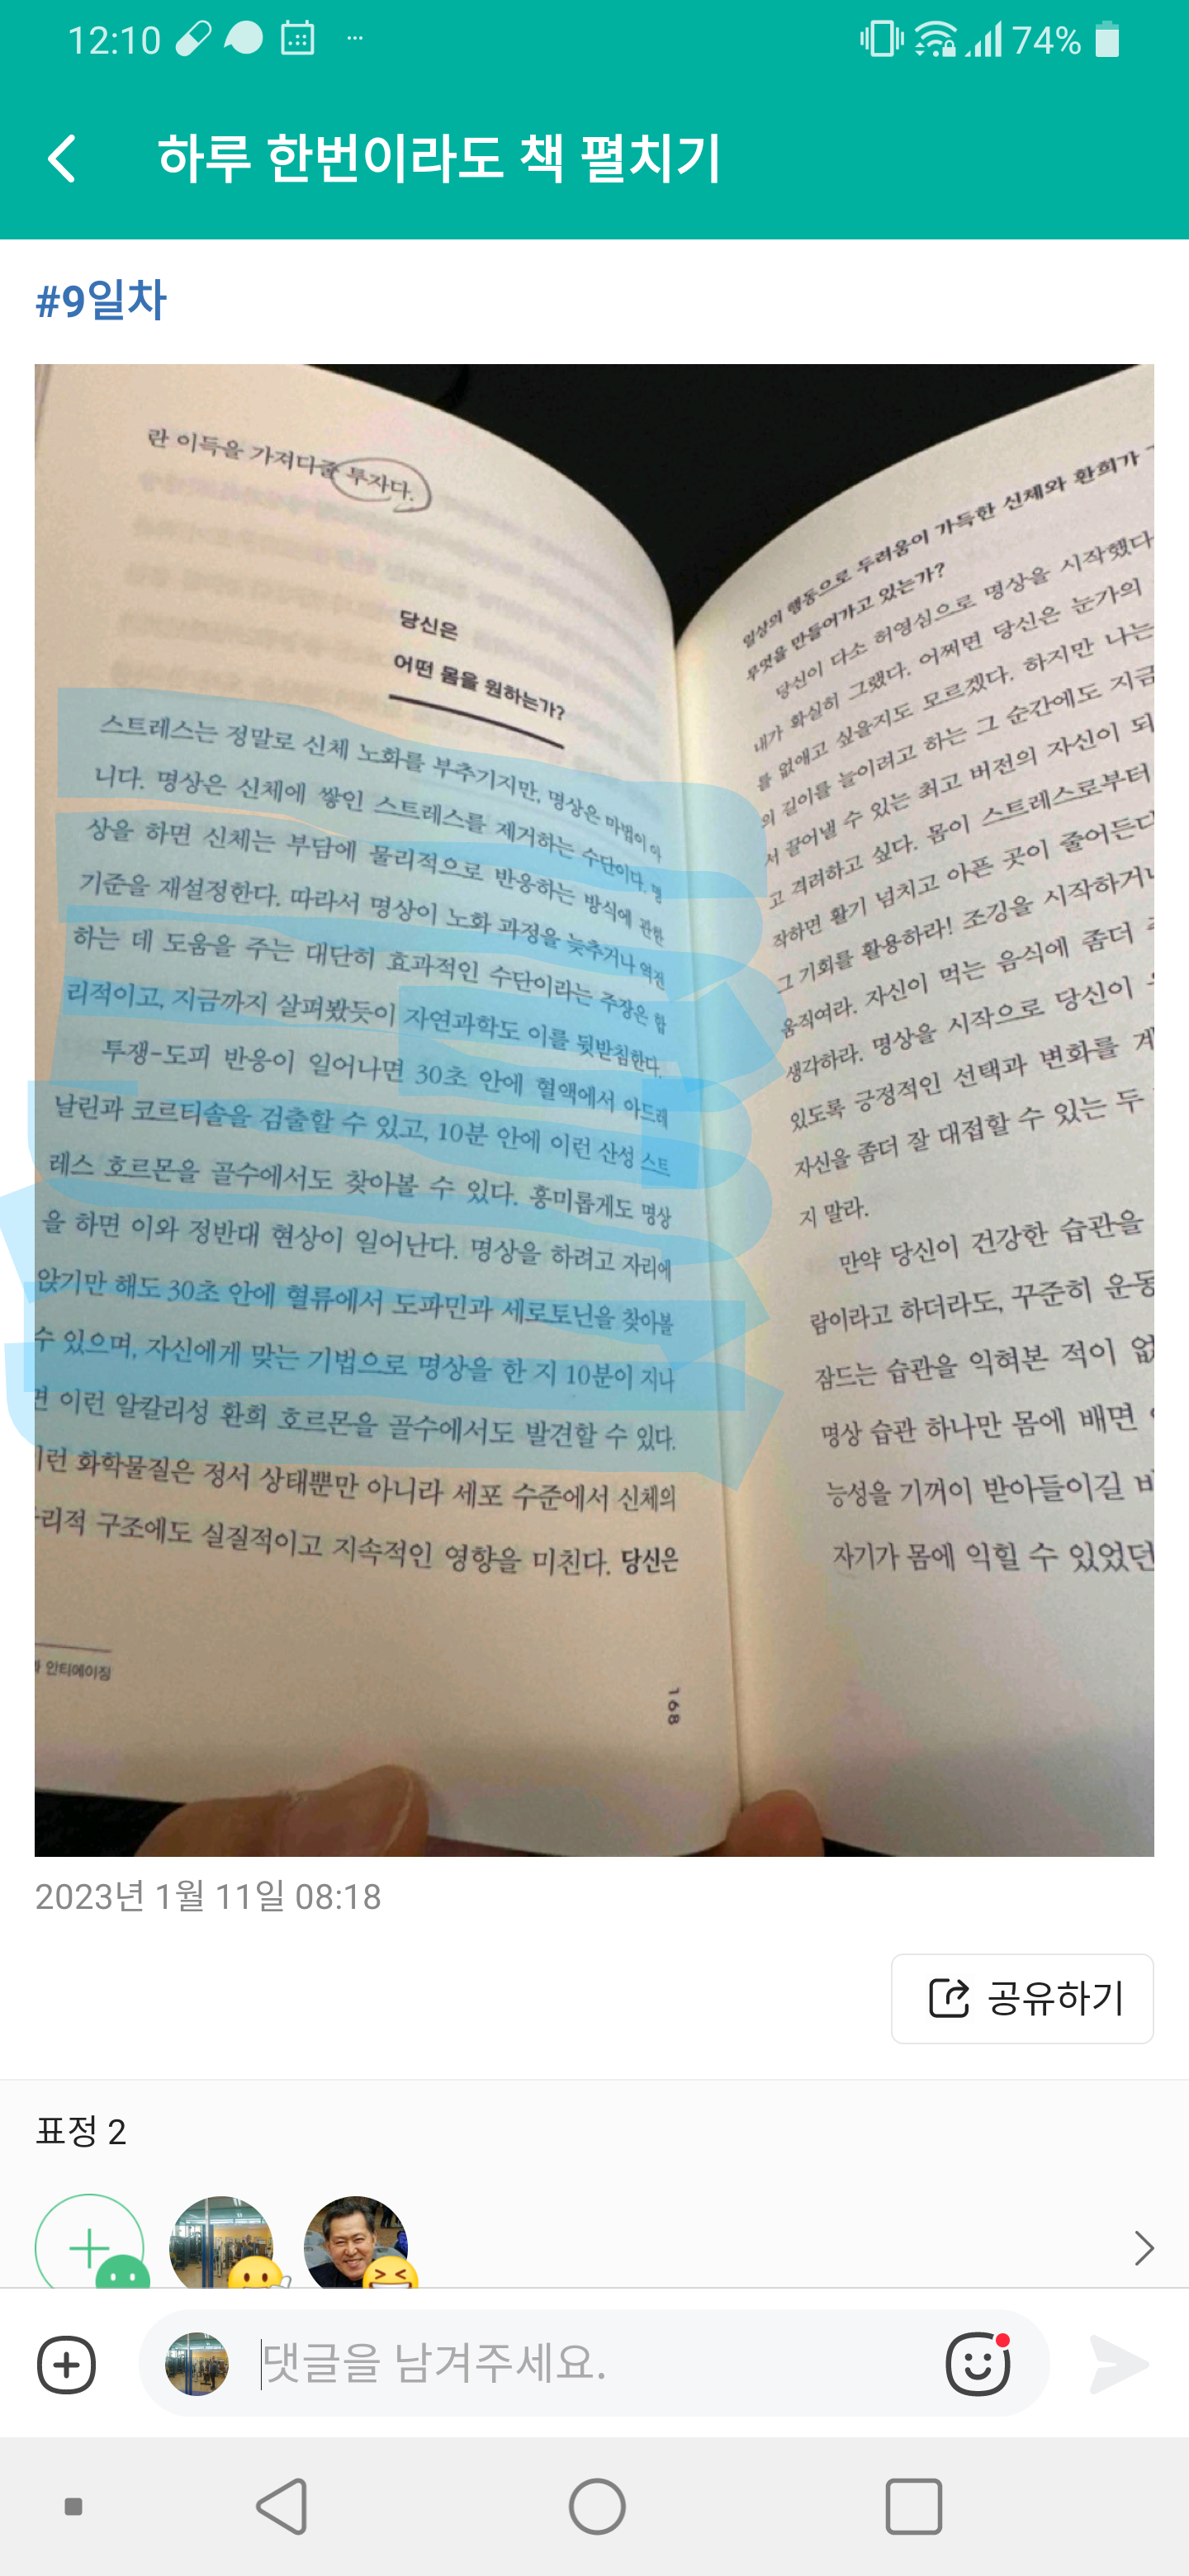 12:10
74%
하루 한번이라도 책 펼치기
#9일차
란 이득을 가져다줄 투자다.
당신은
어떤 몸을 원하는가?
스트레스는 정말로 신체 노화를 부추기지만, 명상은 마법이 아
니다. 명상은 신체에 쌓인 스트레스를 제거하는 수단이다. 명
상을 하면 신체는 부담에 물리적으로 반응하는 방식에 관한
기준을 재설정한다. 따라서 명상이 노화 과정을 늦추거나 역전
하는 데 도움을 주는 대단히 효과적인 수단이라는 주장은 합
리적이고, 지금까지 살펴봤듯이 자연과학도 이를 뒷받침한다.
투쟁-도피 반응이 일어나면 30초 안에 혈액에서 아드레
날린과 코르티솔을 검출할 수 있고, 10분 안에 이런 산성 스트
레스 호르몬을 골수에서도 찾아볼 수 있다. 흥미롭게도 명상
을 하면 이와 정반대 현상이 일어난다. 명상을 하려고 자리에
앉기만 해도 30초 안에 혈류에서 도파민과 세로토닌을 찾아볼
수 있으며, 자신에게 맞는 기법으로 명상을 한 지 10분이 지나
면 이런 알칼리성 환희 호르몬을 골수에서도 발견할 수 있다.
이런 화학물질은 정서 상태뿐만 아니라 세포 수준에서 신체의
리적 구조에도 실질적이고 지속적인 영향을 미친다. 당신은
안티에이징
168
일상의 행동으로 두려움이 가득한 신체와 환희가
무엇을 만들어가고 있는가?
당신이 다소 허영심으로 명상을 시작했다
내가 확실히 그랬다. 어쩌면 당신은 눈가의
를 없애고 싶을지도 모르겠다. 하지만 나는
의 길이를 늘이려고 하는 그 순간에도 지금
서 끌어낼 수 있는 최고 버전의 자신이 되
고 격려하고 싶다. 몸이 스트레스로부터
작하면 활기 넘치고 아픈 곳이 줄어든다
그 기회를 활용하라! 조깅을 시작하거나
움직여라. 자신이 먹는 음식에 좀더
생각하라. 명상을 시작으로 당신이
있도록 긍정적인 선택과 변화를 계
자신을 좀더 잘 대접할 수 있는 두
지 말라.
만약 당신이 건강한 습관을
람이라고 하더라도, 꾸준히 운동
잠드는 습관을 익혀본 적이 없
명상 습관 하나만 몸에 배면
능성을 기꺼이 받아들이길 바
자기가 몸에 익힐 수 있었던
2023년 1월 11일 08:18
공유하기
표정 2
댓글을 남겨주세요.